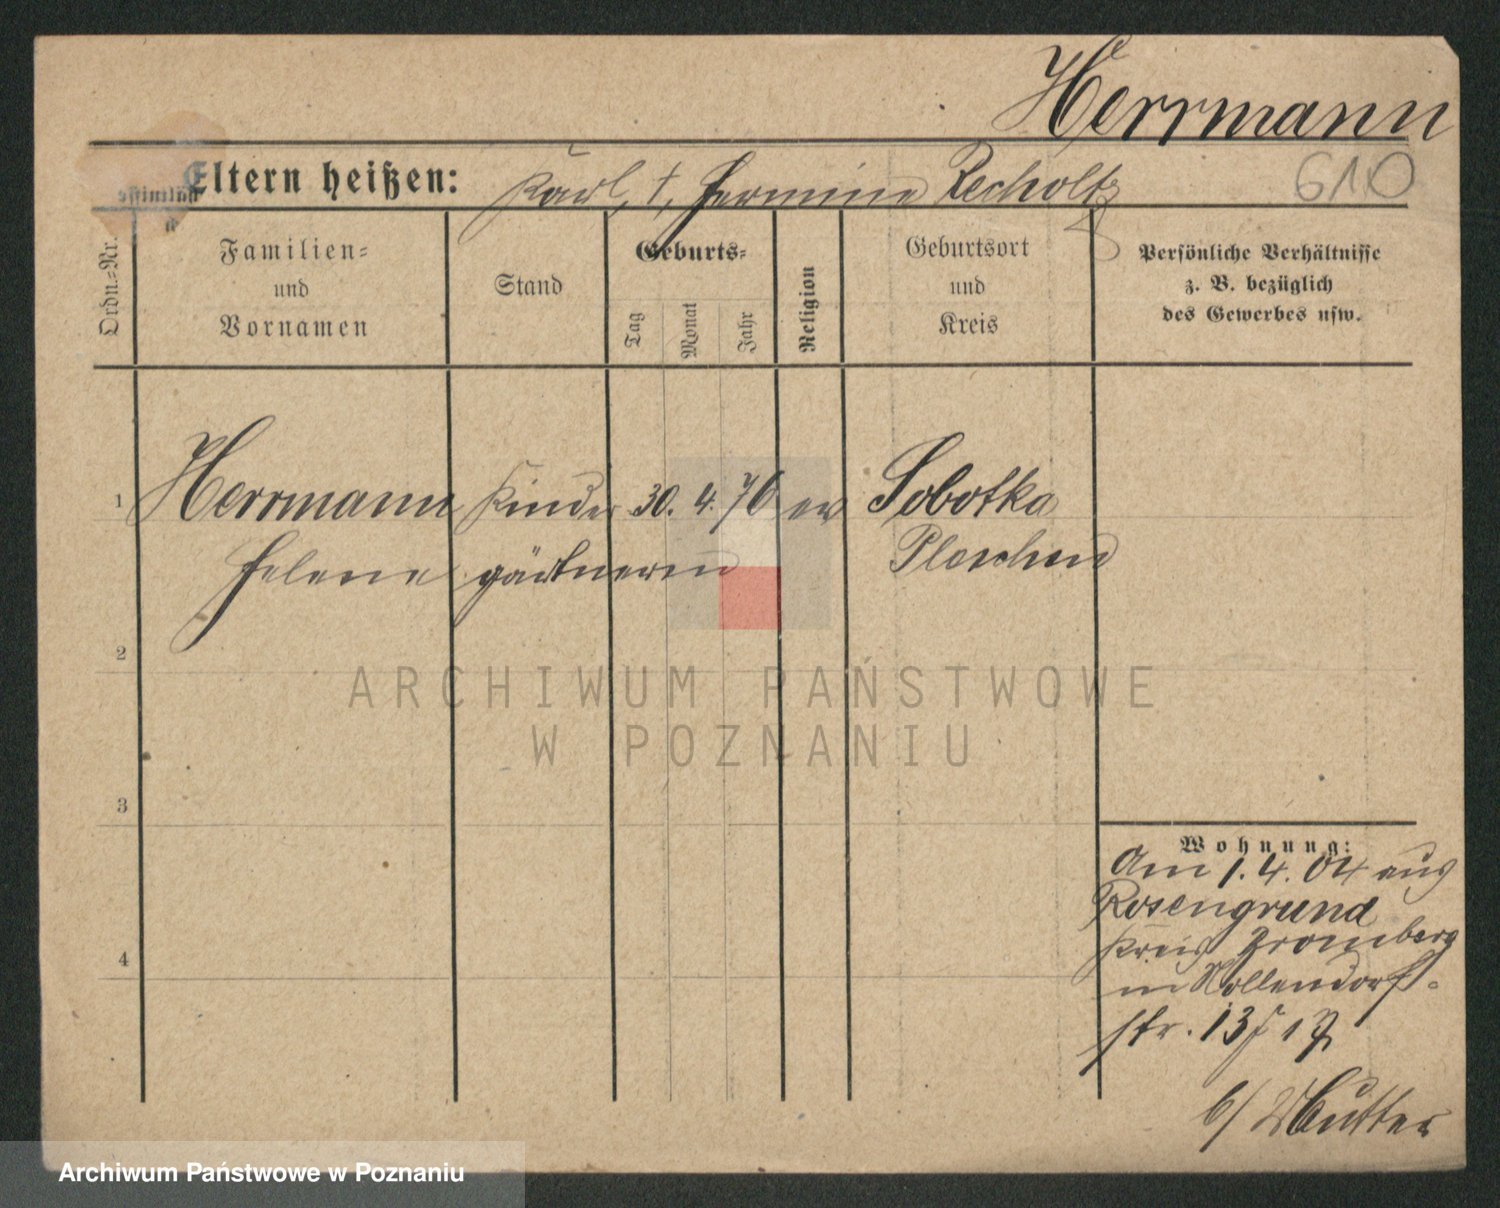 Herrmann
Eltern heißen: Karl, †, Hermine Recholtz
610
Ordn.-Nr.
Familien-
und
Vornamen
Stand
Geburts-
Tag
Monat
Jahr
Religion
Geburtsort
und
Kreis
Persönliche Verhältnisse
z. B. bezüglich
des Gewerbes usw.
1 Herrmann Kinder 30. 4. 76 ev Sobotka
Helene gärtnerin Pleschen
2
3
4
Wohnung:
Am 1.4.04 aus
Rosengrund
Kreis Bromberg
in Nollendorf-
str. 13
b/ Mutter
ARCHIWUM PAŃSTWOWE
W POZNANIU
Archiwum Państwowe w Poznaniu